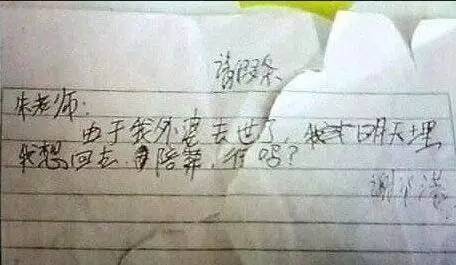 请假条
朱老师:
由于我外婆去世了,我外婆明天埋
我想回去陪葬,行吗?
谢